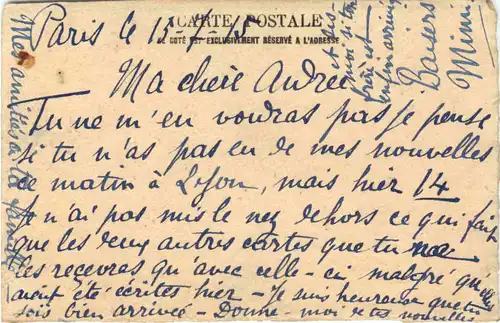 CARTE POSTALE
CE CÔTÉ EST EXCLUSIVEMENT RÉSERVÉ A L'ADRESSE
Paris le 15
Ma chère Andrée
Tu ne m'en voudras pas je pense
si tu n'as pas eu de mes nouvelles
ce matin à Lyon, mais hier 14
Je n'ai pas mis le nez dehors ce qui fait
que les deux autres cartes que tu
les recevras qu'avec celle-ci malgré qu'elles
aient été écrites hier - Je suis heureuse que tu
sois bien arrivée - Donne-moi de tes nouvelles
et
enfin arrivé
Baisers
Mimi
Mes amitiés à ta famille